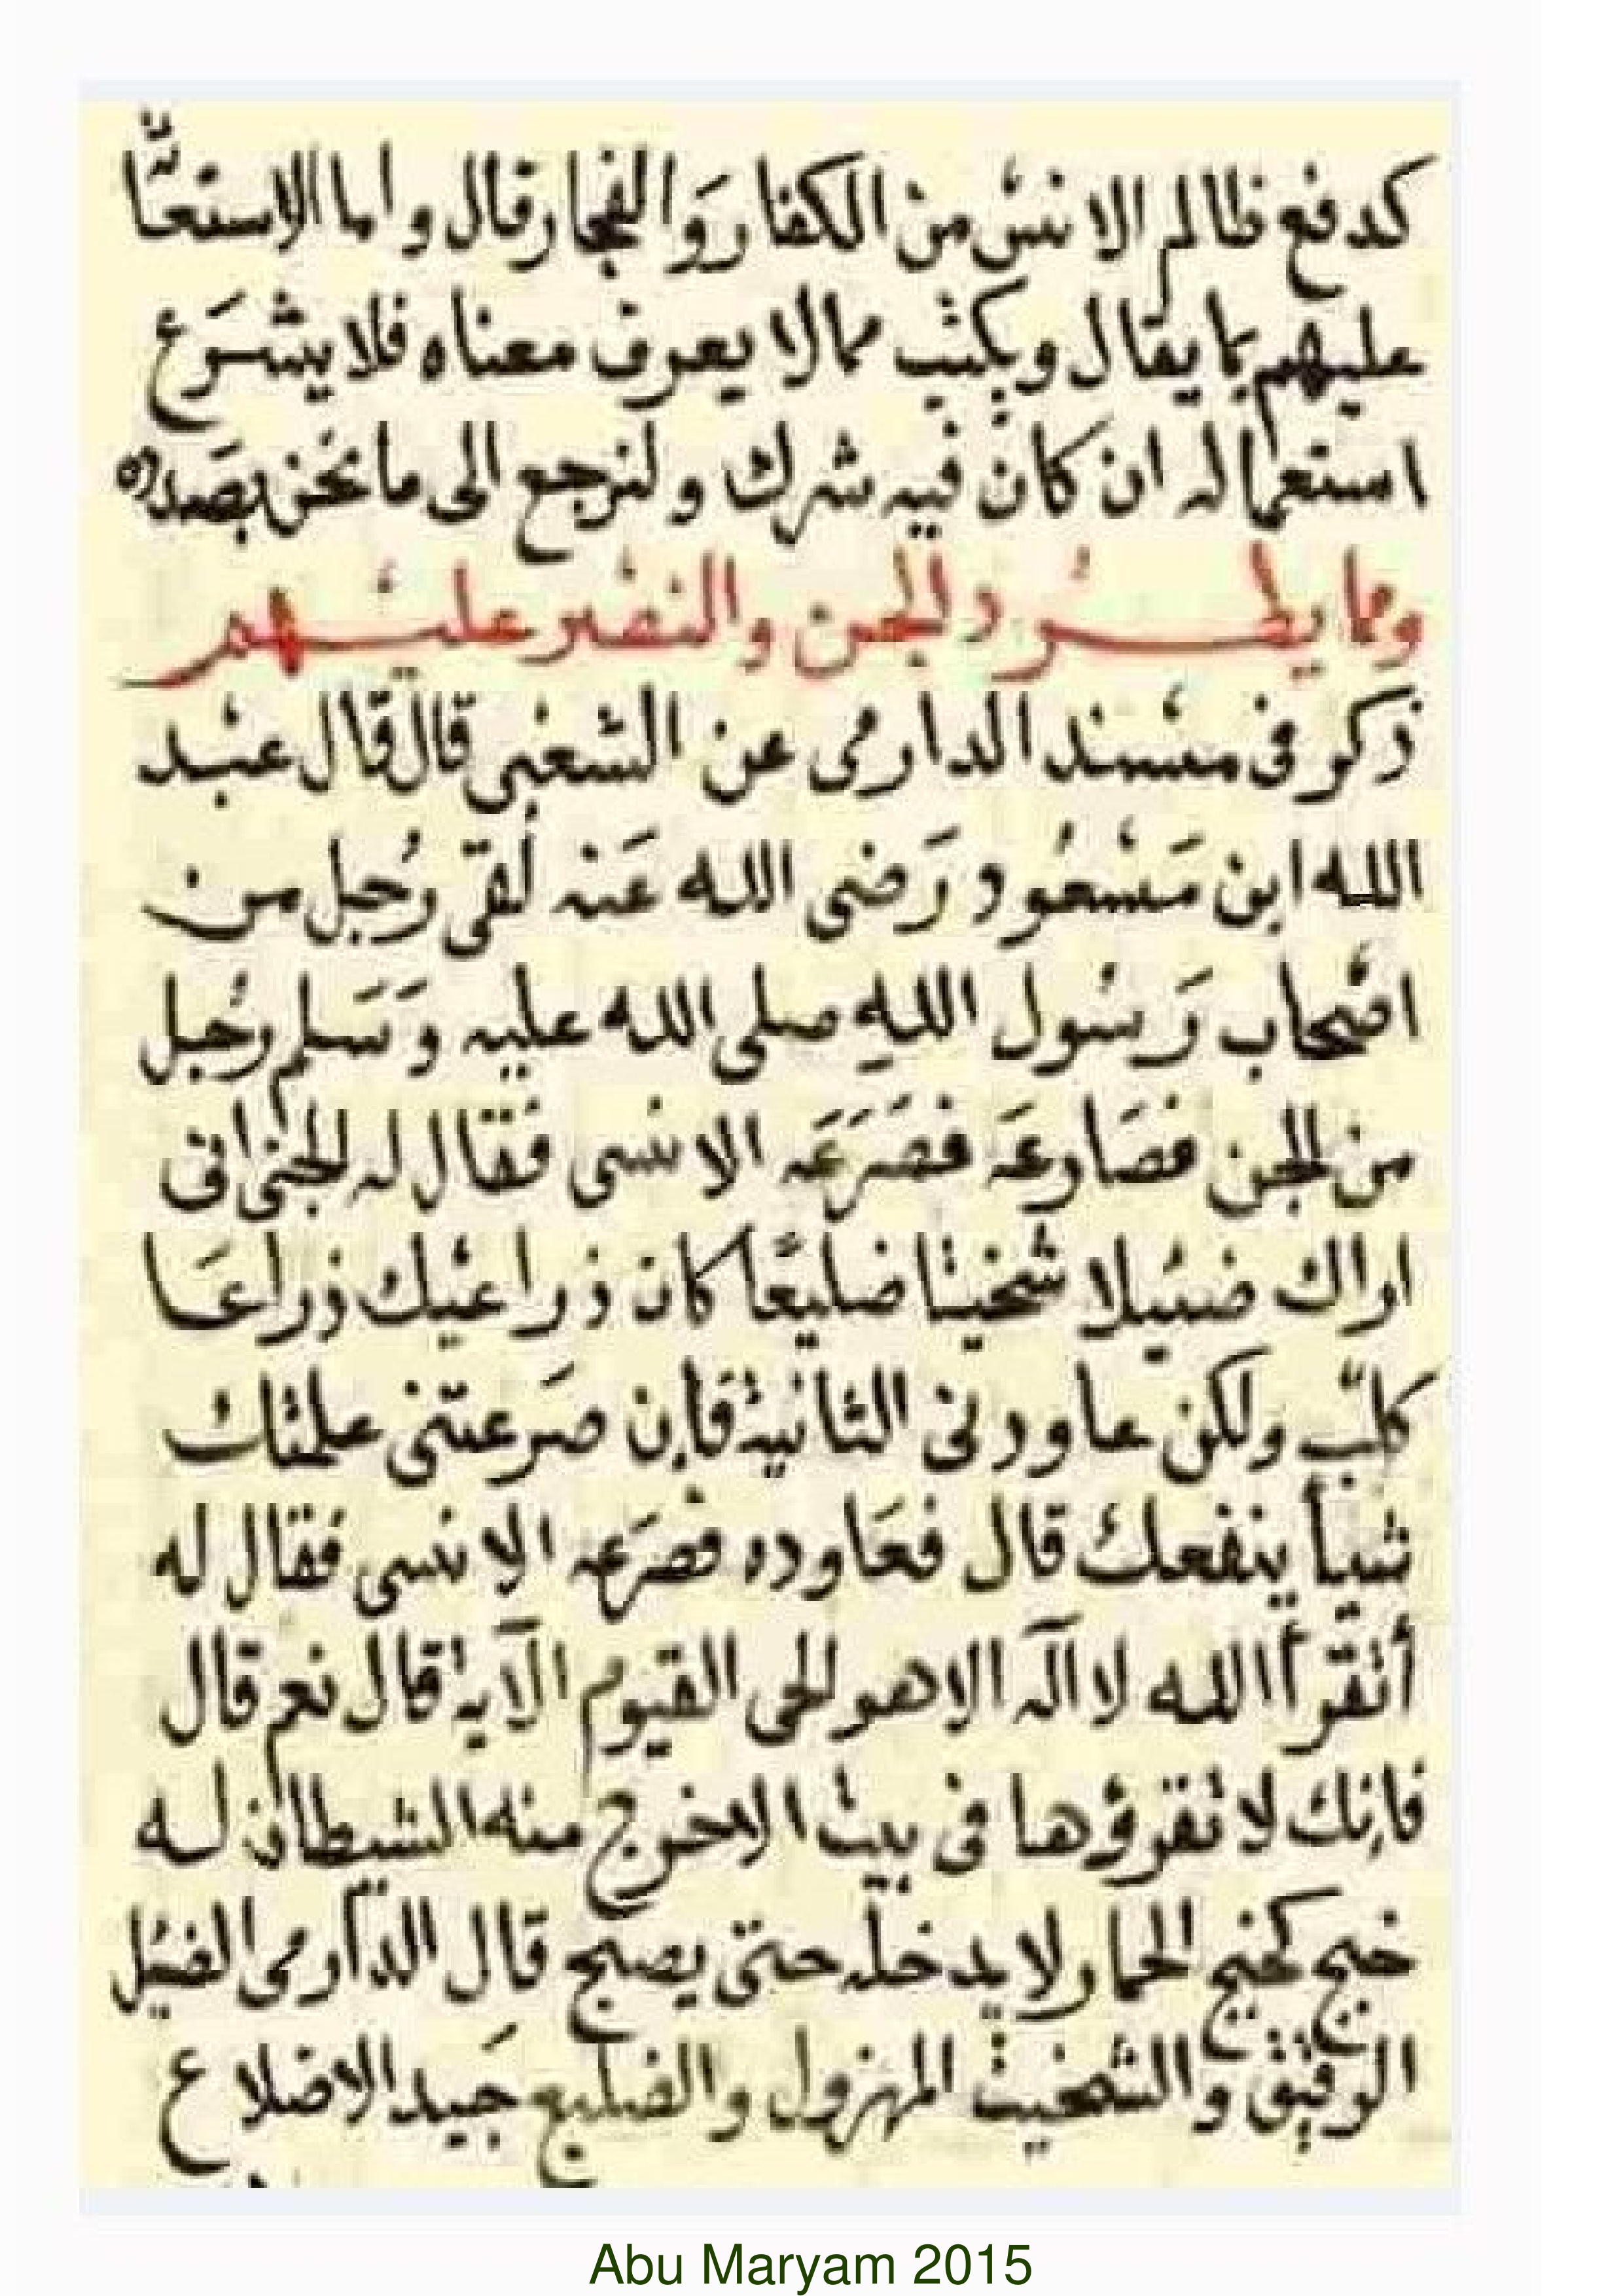 كدفع ظالم الانس من الكفار وَالفجار قال واما الاستعَّا
عليهم بما يقال ويكتب مما لا يعرف معناه فلا يشرَع
استعماله ان كان فيه شرك ولنرجع الى ما نحن بصَدده
ومما يطرد الجن والنصر عليهم
ذكر فى مسند الدارمى عن الشعبى قال قال عبد
الله ابن مَسْعُود رَضى الله عَنه لقى رُجل من
اصحاب رَسُول اللهِ صلى الله عليه وَسَلم رُجل
من الجن فصَارعَه فصَرَعَه الانسى فقال له الجنى انى
اراك ضئيلا شخيتا ضليعًا كان ذراعيك ذراعَا
كلب ولكن عاودنى الثانية فإن صَرعتنى علمتك
شيأ ينفعك قال فعَاوده فصَرَعه الانسى فقال له
أتقرأ الله لا اله الا هو الحى القيوم الآية قال نعم قال
فانك لا تقرؤها فى بيت الا خرج منه الشيطان له
خبج كخبج الحمار لا يدخله حتى يصبح قال الدارمى الضئيل
الرقيق والشخيت المهزول والضليع جَيد الاضلاع
Abu Maryam 2015